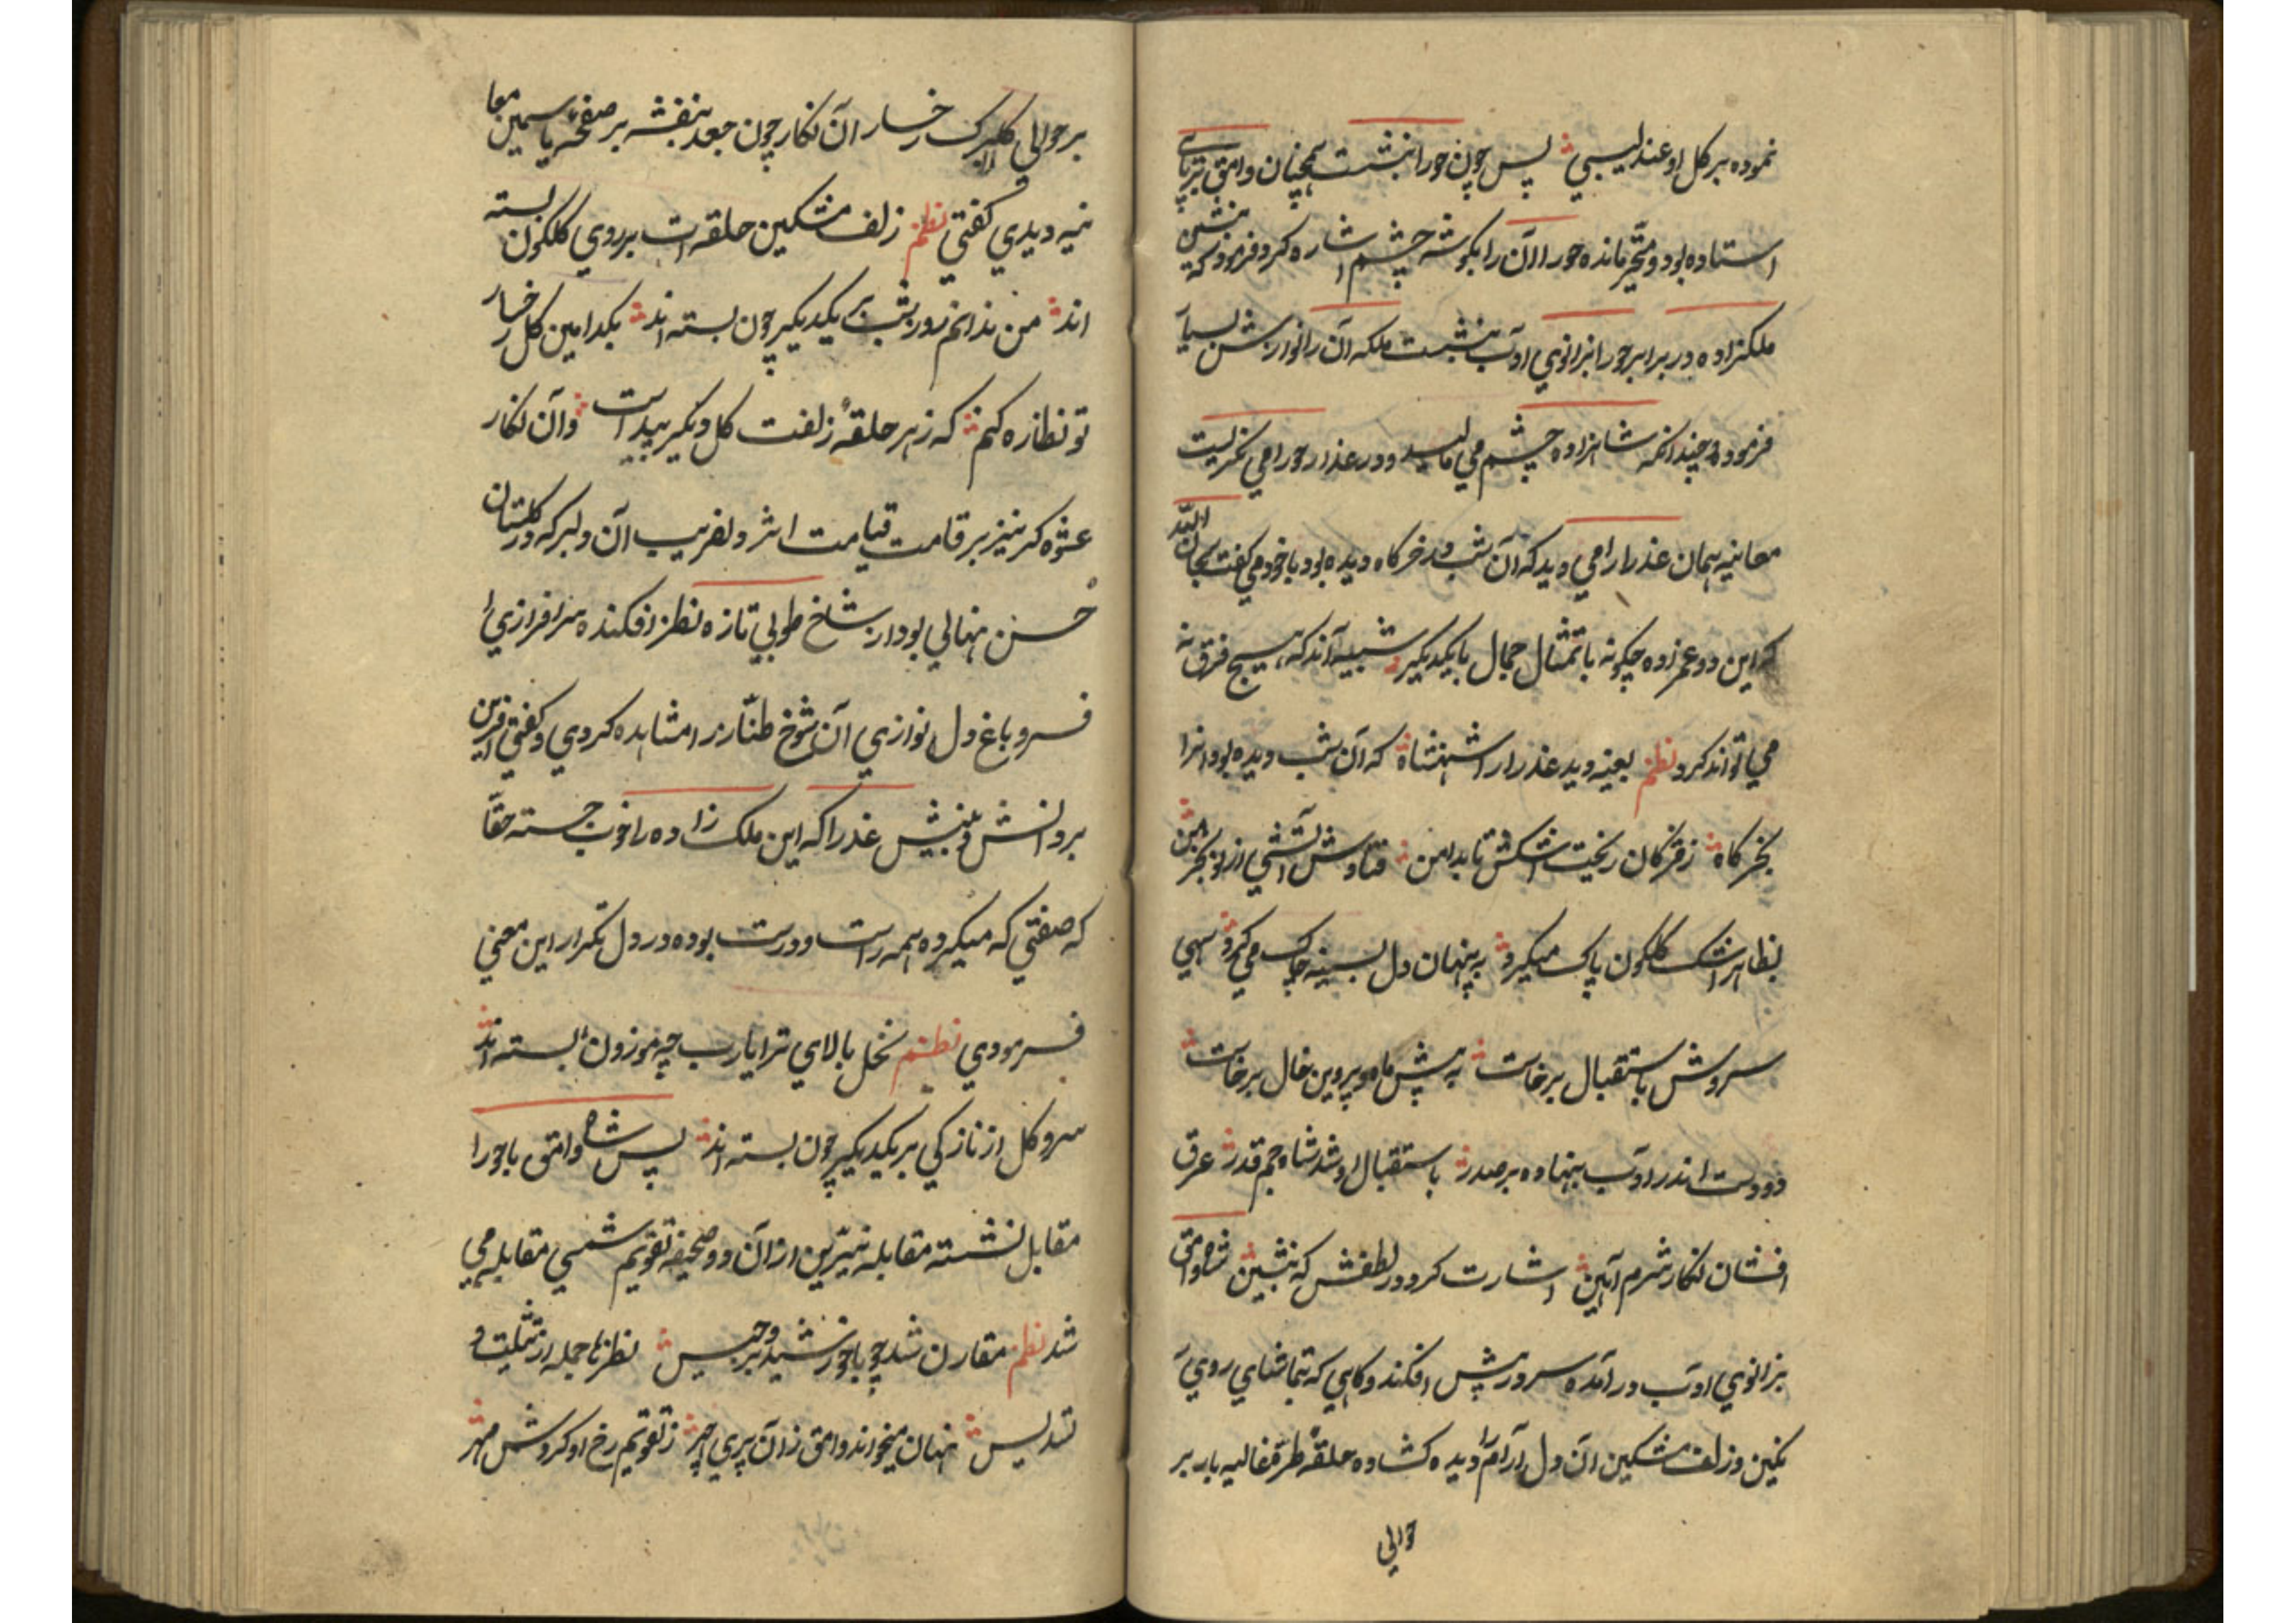 نموده بر کل او عندلیبی پس چون حورا بنشست همچنان وامق برپای
استاده بود و متحیر مانده حورا آن را بکوشه چشم اشاره کرد و فرمود که بنشین
ملکزاده در برابر حورا بزانوی ادب بنشست ملکه آن را نوازش بسیار
فرمود و چندانکه شاهزاده چشم می مالید و در عذار حورا می نکریست
معاینه همان عذرا را می دید که آن شب در خرکاه دیده بود با خود می کفت سبحان الله
که این دو عمزاده چکونه با تمثال جمال با یکدیکر شبیه آند که هیچ فرق نه
می تواند کرد نظم بعینه دید عذرا را شهنشاه که آن شب دیده بود انرا
بخرکاه ز مژکان ریخت اشکش تا بدامن فتاوش آتشی از نو بخرمن
بظاهر اشک کلکون پاک میکرد به پنهان دل بسینه چاک می کرد سهی
سروش باستقبال برخاست به پیش ماه و پروین خال برخاست
دو دست اندر ادب بنهاده بر صدر باستقبال او شد شاه جم قدر عرق
افشان نکار شرم آیین اشارت کرد در لطفش که بنشین شاه وامق
بزانوی ادب در آمده سر در پیش افکند و کاهی که بتماشای روی
نکین و زلف مشکین آن دل آرام را دیده کشاده حلقهٔ طره غالیه بار بر
حوالی
بر حوالی کلبرک رخسار آن نکار چون جعد بنفشه بر صفحه یاسمین معا
ینه دیدی کفتی نظم زلف مشکین حلقه است بر روی کلکون بسته
اند من ندانم روز و شب بر یکدیکر چون بسته اند بکدامین کل رخسار
تو نظاره کنم که زهر حلقهٔ زلفت کل دیکر پیداست و آن نکار
عشوه کر نیز بر قامت قیامت اثر دلفریب آن دلبر که در کلستان
حسن نهالی بود از شاخ طوبی تازه نظر افکنده سرافرازی
سرو باغ دل نوازی آن شوخ طناز را مشاهده کردی و کفتی آفرین
بر دانش و بینش عذرا که این ملک زاده را خوب جسته حقا
که صفتی که میکرده همه راست و درست بوده در دل تکرار این معنی
فرمودی نظم نخل بالای ترا یارب چه موزون بسته اند
سرو کل از نازکی بر یکدیکر چون بسته اند پس شاه وامق با حورا
مقابل نشسته مقابله نیرین از آن دو صحیفه تقویم شمسی مقابله می
شد نظم مقارن شد چو با خورشید برجیس نظرها جمله از تثلیث و
تسدیس نهان میخواند وامق زان پری چهر ز تقویم رخ او کردش مهر